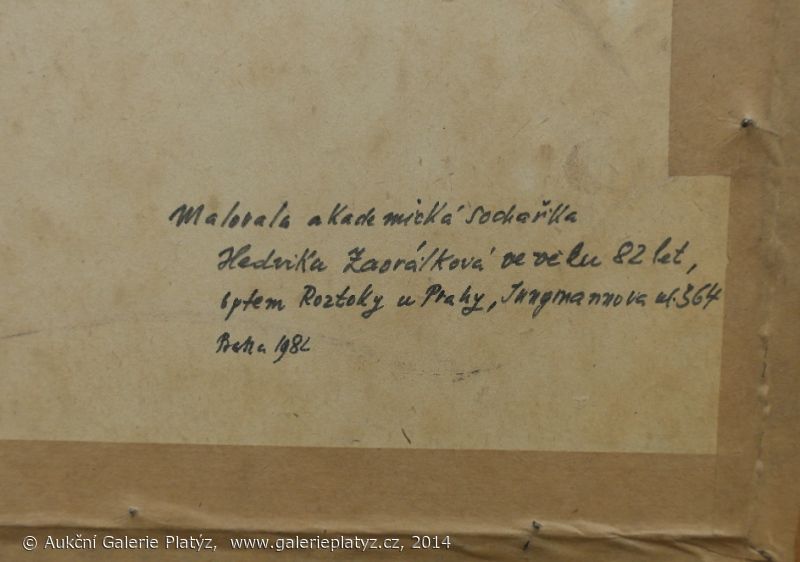 Malovala akademická sochařka
Hedvika Zaorálková ve věku 82 let,
bytem Roztoky u Prahy, Jungmannova ul. 364
1982
© Aukční Galerie Platýz, www.galerieplatyz.cz, 2014